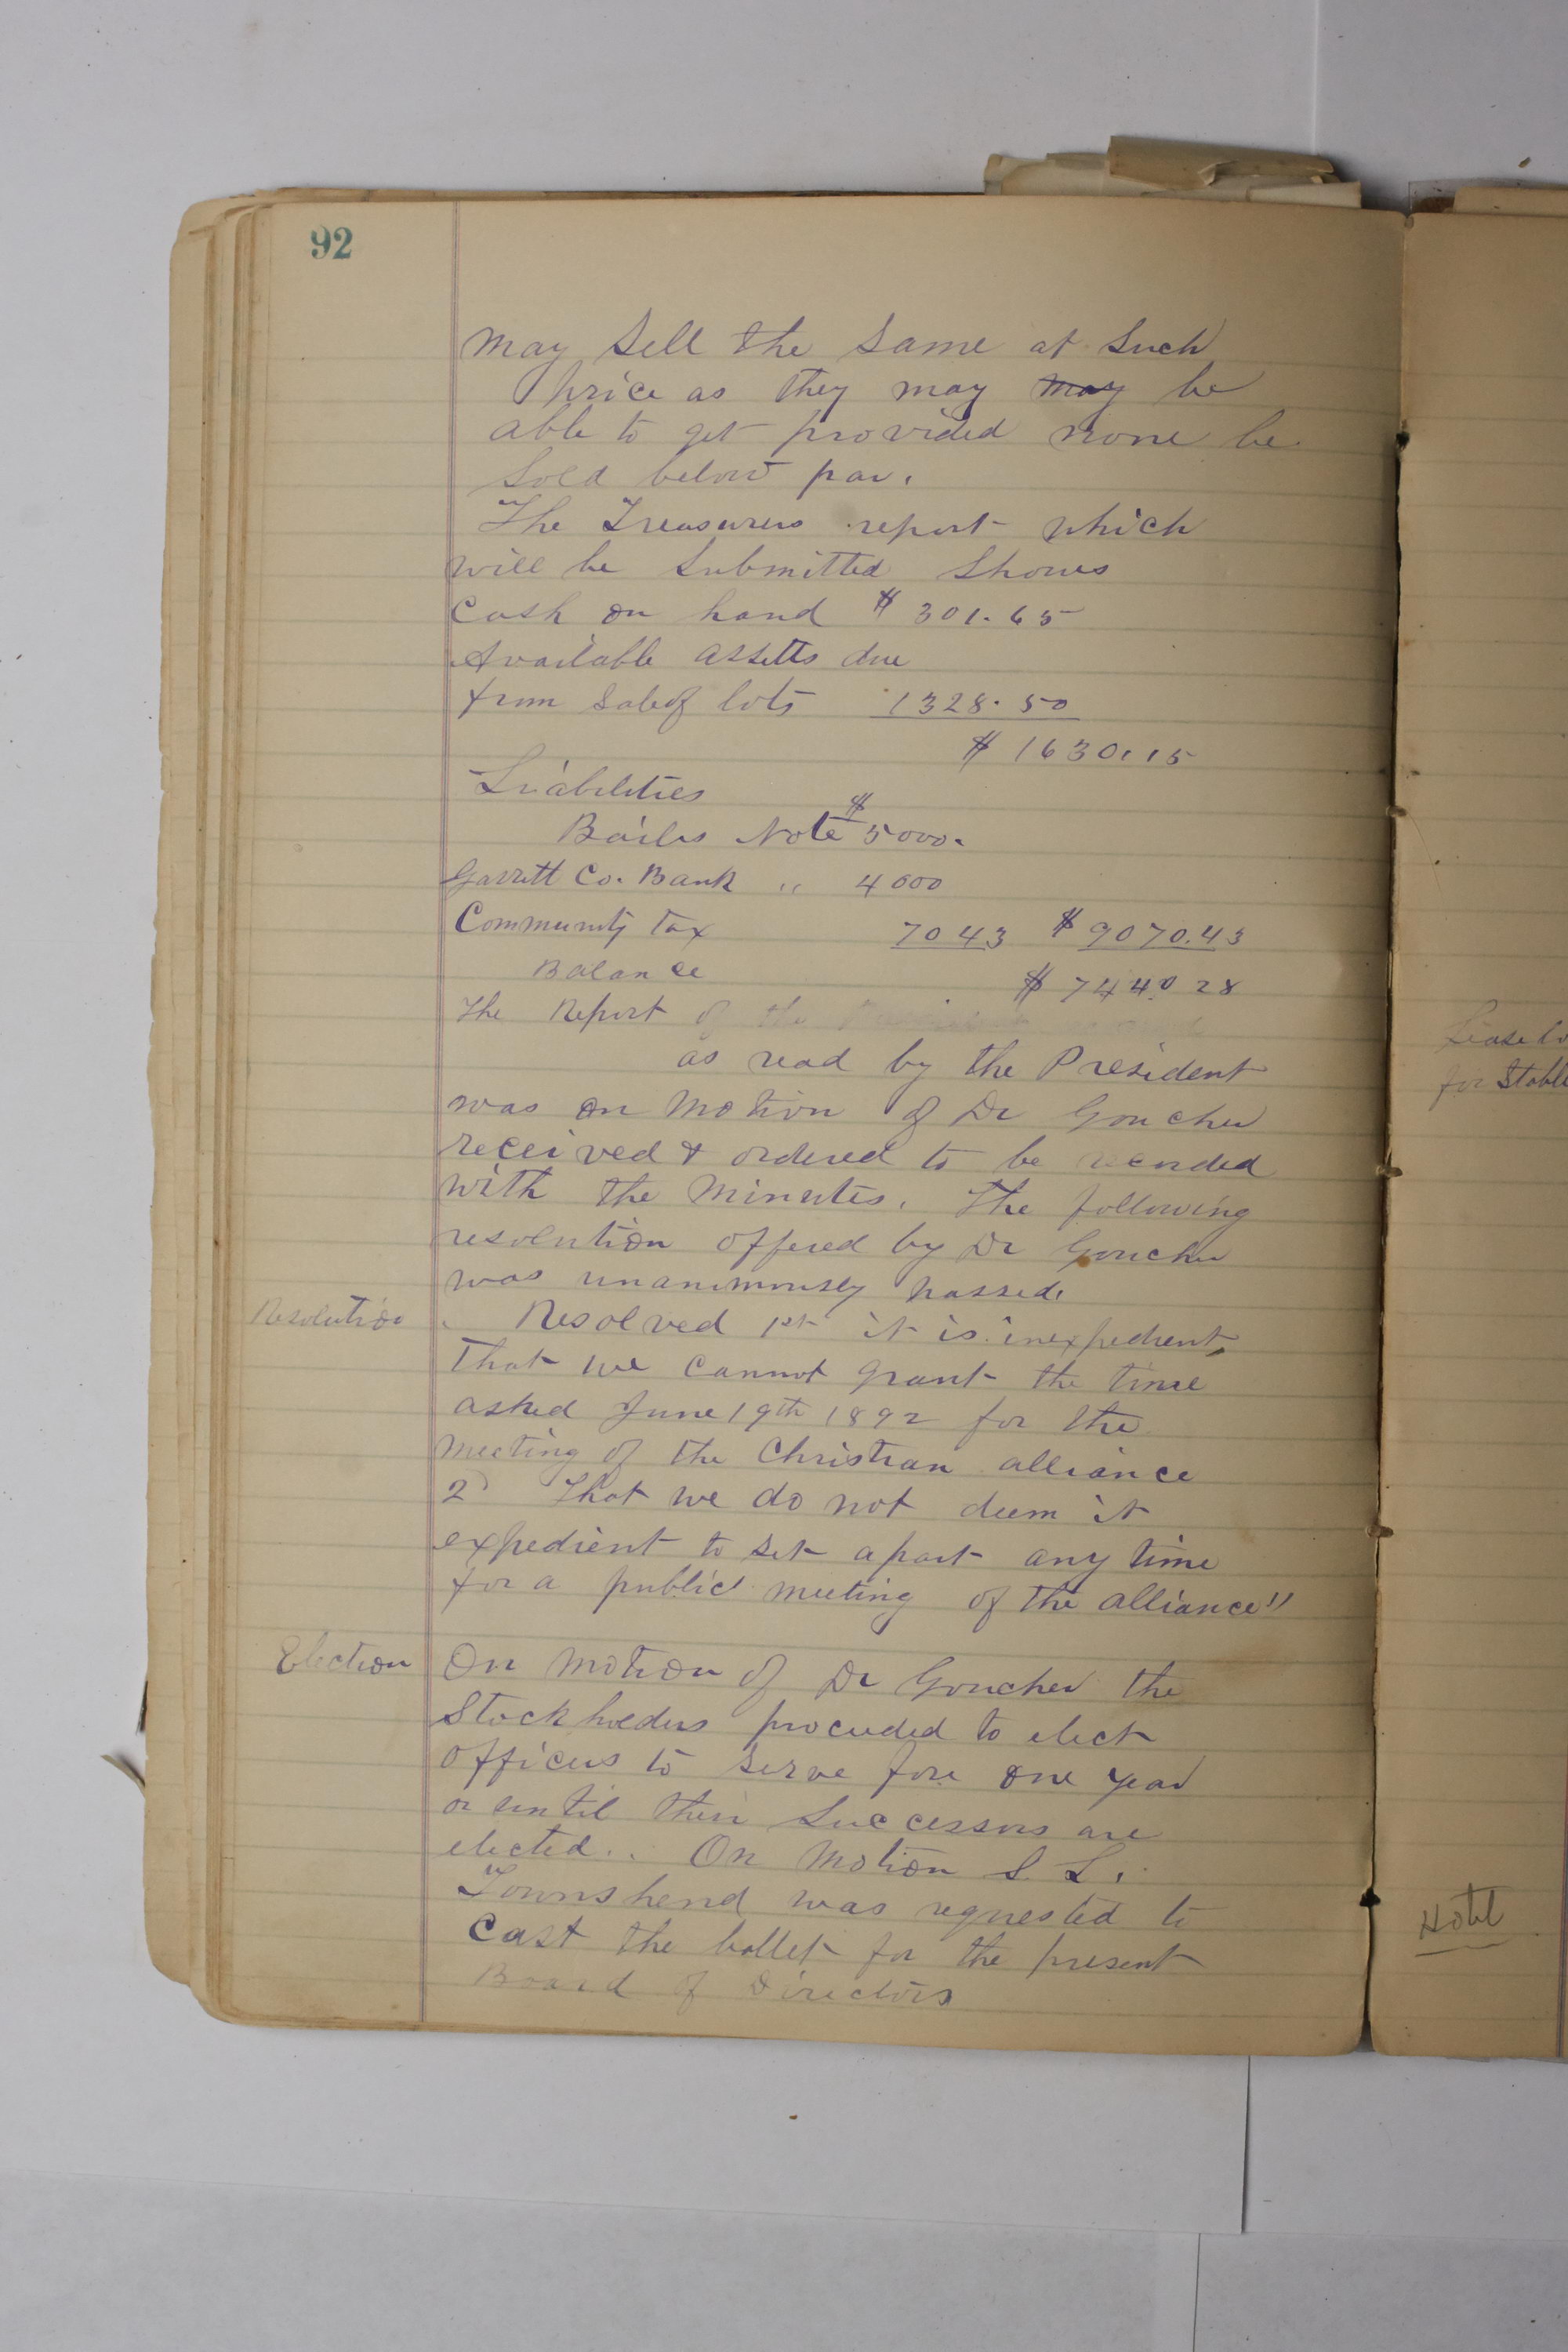 92
may Sell the Same at Such
price as they may may be
able to get provided none be
Sold below par.
The Treasurers report which
will be Submitted Shows
Cash on hand $ 301.65
Available assetts due
from Sale of lots 1328.50
$ 1630.15
Liabilities
Boiler Note $ 5000.
Garrett Co. Bank " 4000
Community tax 7043 $ 9070.43
Balance $ 7440 28
The Report of the
as read by the President
was on Motion of Dr Goucher
received & ordered to be recorded
with the Minutes. The following
resolution offered by Dr Goucher
was unanimously passed.
Resolution
Resolved 1st it is inexpedient,
that we cannot grant the time
asked June 19th 1892 for the
Meeting of the Christian alliance
2) That we do not deem it
expedient to set apart any time
for a public meeting of the alliance"
Election
On Motion of Dr Goucher the
Stockholders proceeded to elect
officers to serve fore one year
or until their Successors are
elected.. On Motion S. L.
Townshend was requested to
cast the ballet for the present
Board of Directors
for Stable
Hotel